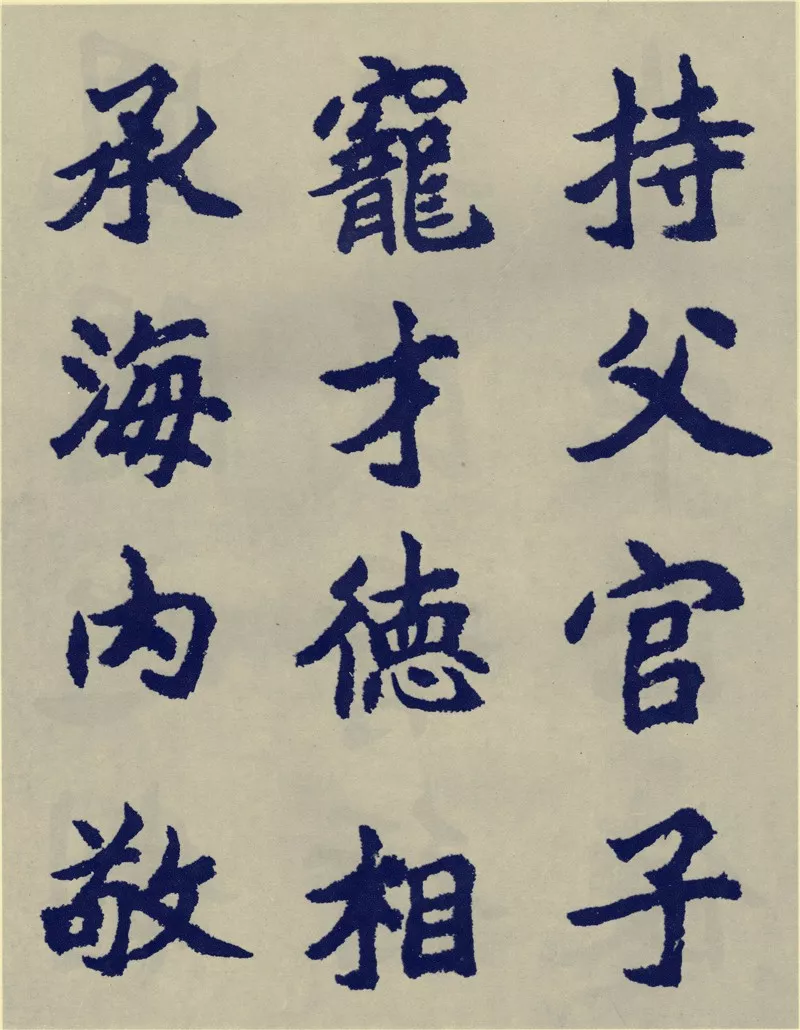 持父官子
寵才德相
承海内敬